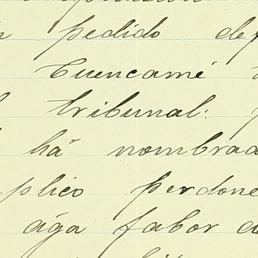 pedido
Cuencamé
tribunal.
há nombrad
plico perdone
ága fabor